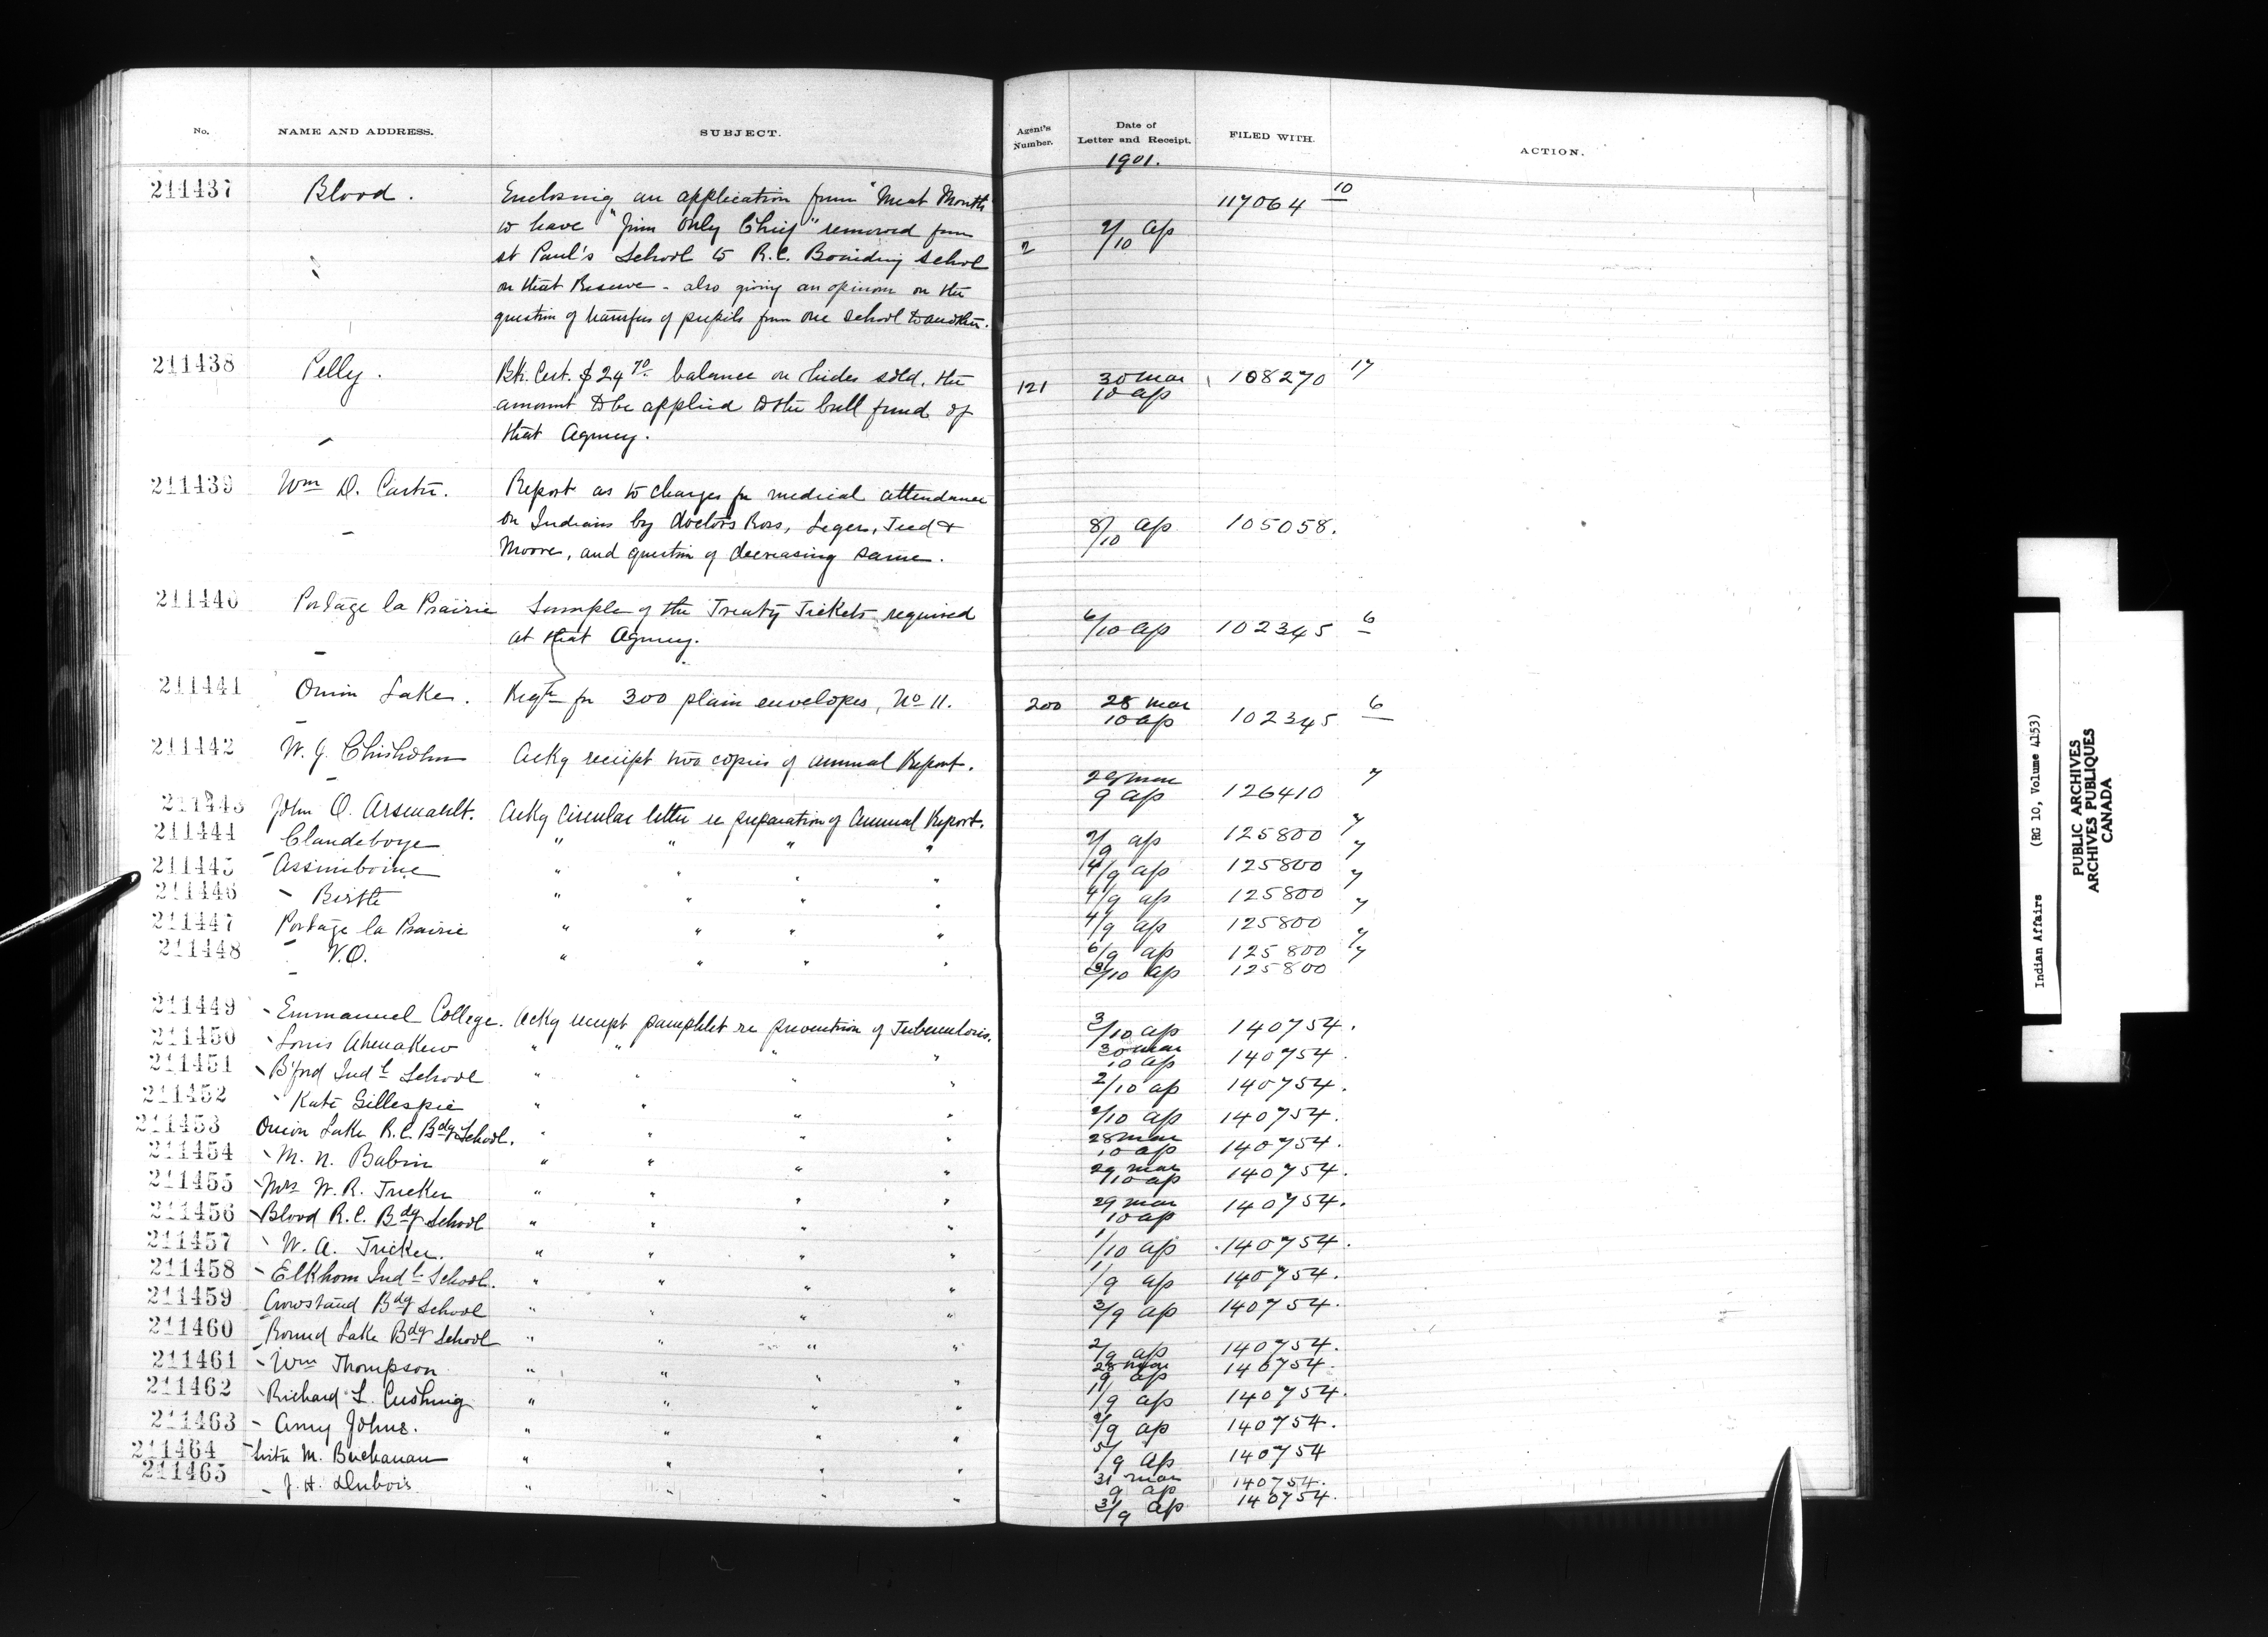 No. NAME AND ADDRESS. SUBJECT. Agent's Number. Date of Letter and Receipt. FILED WITH. ACTION.
1901.
211437 Blood. Enclosing an application from "Meat Mouth"
to have "Jim Only Chief" removed from
St Paul's School to R.C. Boarding School
on that Reserve - also giving an opinion on the
question of transfer of pupils from one school to another.
2 2/10 ap 117064 10
211438 Pelly. Bk. Cert. $24 70 balance on hides sold, the
amount to be applied to the bull fund of
that Agency.
121 30 Mar 10 ap 108270 17
211439 Wm D. Carter. Report as to charges for medical attendance
on Indians by doctors Ross, Leger, &
Moore, and question of decreasing same.
8/10 ap 105058.
211440 Portage la Prairie Sample of the Treaty Tickets required
at that Agency.
6/10 ap 102345 6
211441 Onion Lake. Reqn for 300 plain envelopes, No 11. 200 28 mar 10 ap 102345 6
211442 W. J. Chisholm Ackg receipt two copies of annual Report. 29 mar 9 ap 126410 7
211443 John O. Arsenault. Ackg circular letter re preparation of Annual Report. 2/9 ap 125800 7
211444 Clandeboye " " " " 4/9 ap 125800 7
211445 Assiniboine " " " " 4/9 ap 125800 7
211446 - Birtle " " " " 4/9 ap 125800 7
211447 Portage la Prairie " " " " 6/9 ap 125800 7
211448 V.O. " " " " /10 ap 125800 7
211449 - Emmanuel College. Ackg receipt pamphlet re prevention of Tuberculosis. 3/10 ap 140754.
211450 Louis Ahenakew " " " " 30 mar 10 ap 140754.
211451 B'ford Indl School " " " " 2/10 ap 140754.
211452 Kate Gillespie " " " " 2/10 ap 140754.
211453 Onion Lake R.C. Bdg School. " " " " 28 mar 10 ap 140754.
211454 M. N. Babin " " " " 29 mar 10 ap 140754.
211455 Mrs W. R. Tucker " " " " 29 mar 10 ap 140754.
211456 Blood R.C. Bdg School " " " " 1/10 ap 140754.
211457 W. A. Tucker. " " " " 1/9 ap 140754.
211458 - Elkhorn Indl School. " " " " 3/9 ap 140754.
211459 Crowstand Bdg School " " " " 2/9 ap 140754.
211460 Round Lake Bdg School " " " " 28 mar 9 ap 140754.
211461 - Wm Thompson " " " " 1/9 ap 140754.
211462 Richard L. Cushing " " " " 2/9 ap 140754.
211463 - Amy Johns. " " " " 5/9 ap 140754
211464 Sister M. Buchanan " " " " 31 mar 9 ap 140754.
211465 - J. H. Dubois " " " " 3/9 ap 140754.
Indian Affairs (RG 10, Volume 4153)
PUBLIC ARCHIVES
ARCHIVES PUBLIQUES
CANADA